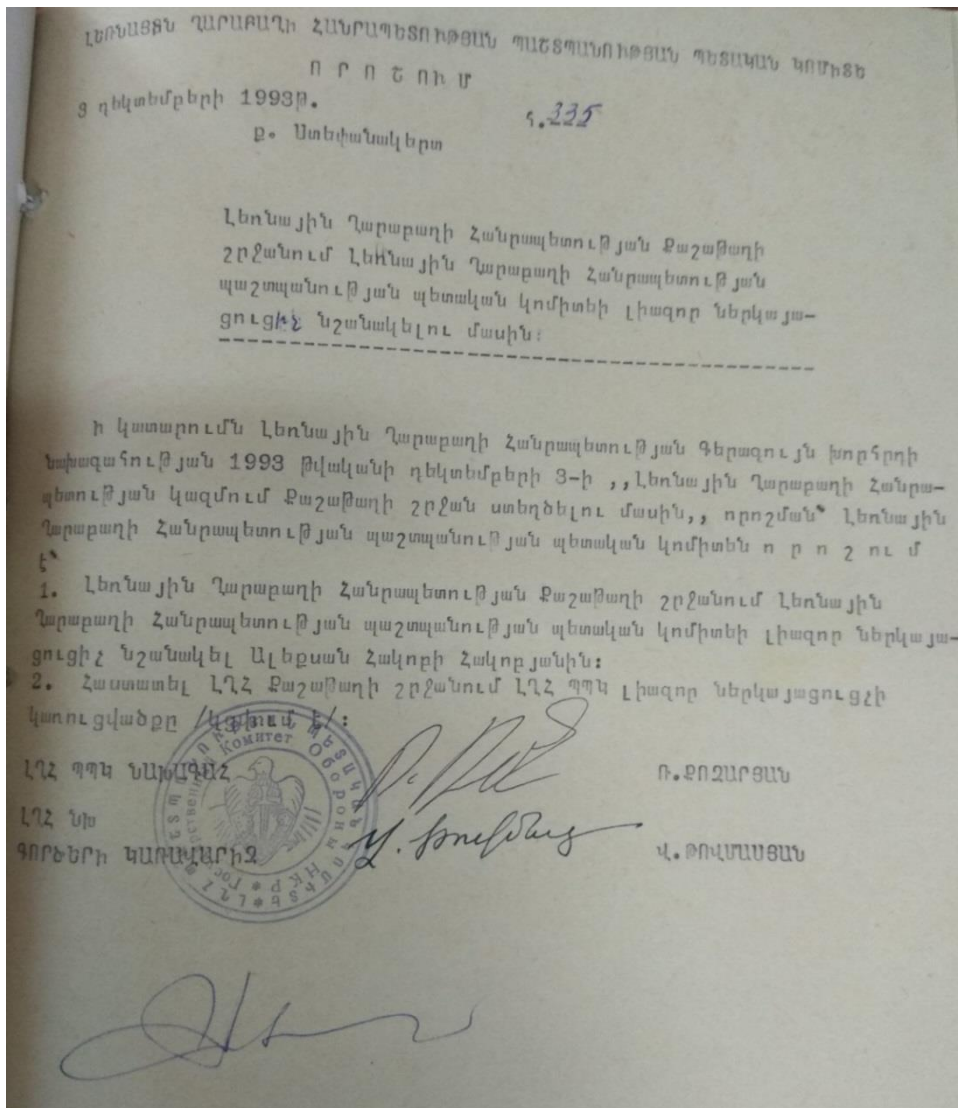 ԼԵՌՆԱՅԻՆ ՂԱՐԱԲԱՂԻ ՀԱՆՐԱՊԵՏՈՒԹՅԱՆ ՊԱՇՏՊԱՆՈՒԹՅԱՆ ՊԵՏԱԿԱՆ ԿՈՄԻՏԵ
Ո Ր Ո Շ ՈՒ Մ
3 դեկտեմբերի 1993թ.
հ.335
ք. Ստեփանակերտ
Լեռնային Ղարաբաղի Հանրապետության Քաշաթաղի
շրջանում Լեռնային Ղարաբաղի Հանրապետության
պաշտպանության պետական կոմիտեի լիազոր ներկայա-
ցուցիչ նշանակելու մասին:
Ի կատարումն Լեռնային Ղարաբաղի Հանրապետության Գերագույն խորհրդի
նախագահության 1993 թվականի դեկտեմբերի 3-ի ,,Լեռնային Ղարաբաղի Հանրա-
պետության կազմում Քաշաթաղի շրջան ստեղծելու մասին,, որոշման՝ Լեռնային
Ղարաբաղի Հանրապետության պաշտպանության պետական կոմիտեն ո ր ո շ ու մ
է՝
1. Լեռնային Ղարաբաղի Հանրապետության Քաշաթաղի շրջանում Լեռնային
Ղարաբաղի Հանրապետության պաշտպանության պետական կոմիտեի լիազոր ներկայա-
ցուցիչ նշանակել Ալեքսան Հակոբի Հակոբյանին:
2. Հաստատել ԼՂՀ Քաշաթաղի շրջանում ԼՂՀ ՊՊԿ լիազոր ներկայացուցչի
կառուցվածքը /կցվում է/:
ԼՂՀ ՊՊԿ ՆԱԽԱԳԱՀ Ռ.ՔՈՉԱՐՅԱՆ
ԼՂՀ ՆԽ
ԳՈՐԾԵՐԻ ԿԱՌԱՎԱՐԻՉ Վ.ԹՈՎՄԱՍՅԱՆ
Комитет Обороны НКР